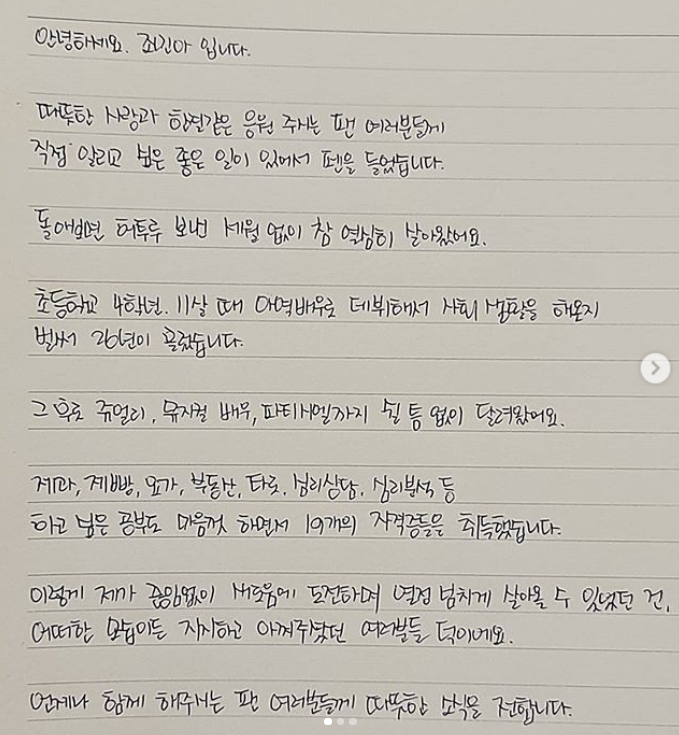 안녕하세요. 조민아 입니다.
따뜻한 사랑과 한결같은 응원 주시는 팬 여러분들께
직접 알리고 싶은 좋은 일이 있어서 펜을 들었습니다.
돌아보면 허투루 보낸 세월 없이 참 열심히 살아왔어요.
초등학교 4학년. 11살 때 아역배우로 데뷔해서 사회 생활을 해온지
벌써 26년이 흘렀습니다.
그 후로 쥬얼리, 뮤지컬 배우, 파티시엘까지 쉴 틈 없이 달려왔어요.
제과, 제빵, 요가, 부동산, 타로, 심리상담, 심리분석 등
하고 싶은 공부도 마음껏 하면서 19개의 자격증들을 취득했습니다.
이렇게 제가 끊임없이 새로움에 도전하며 열정 넘치게 살아올 수 있었던 건,
어떠한 모습이든 지지하고 아껴주셨던 여러분들 덕이에요.
언제나 함께 해주시는 팬 여러분들께 따뜻한 소식을 전합니다.